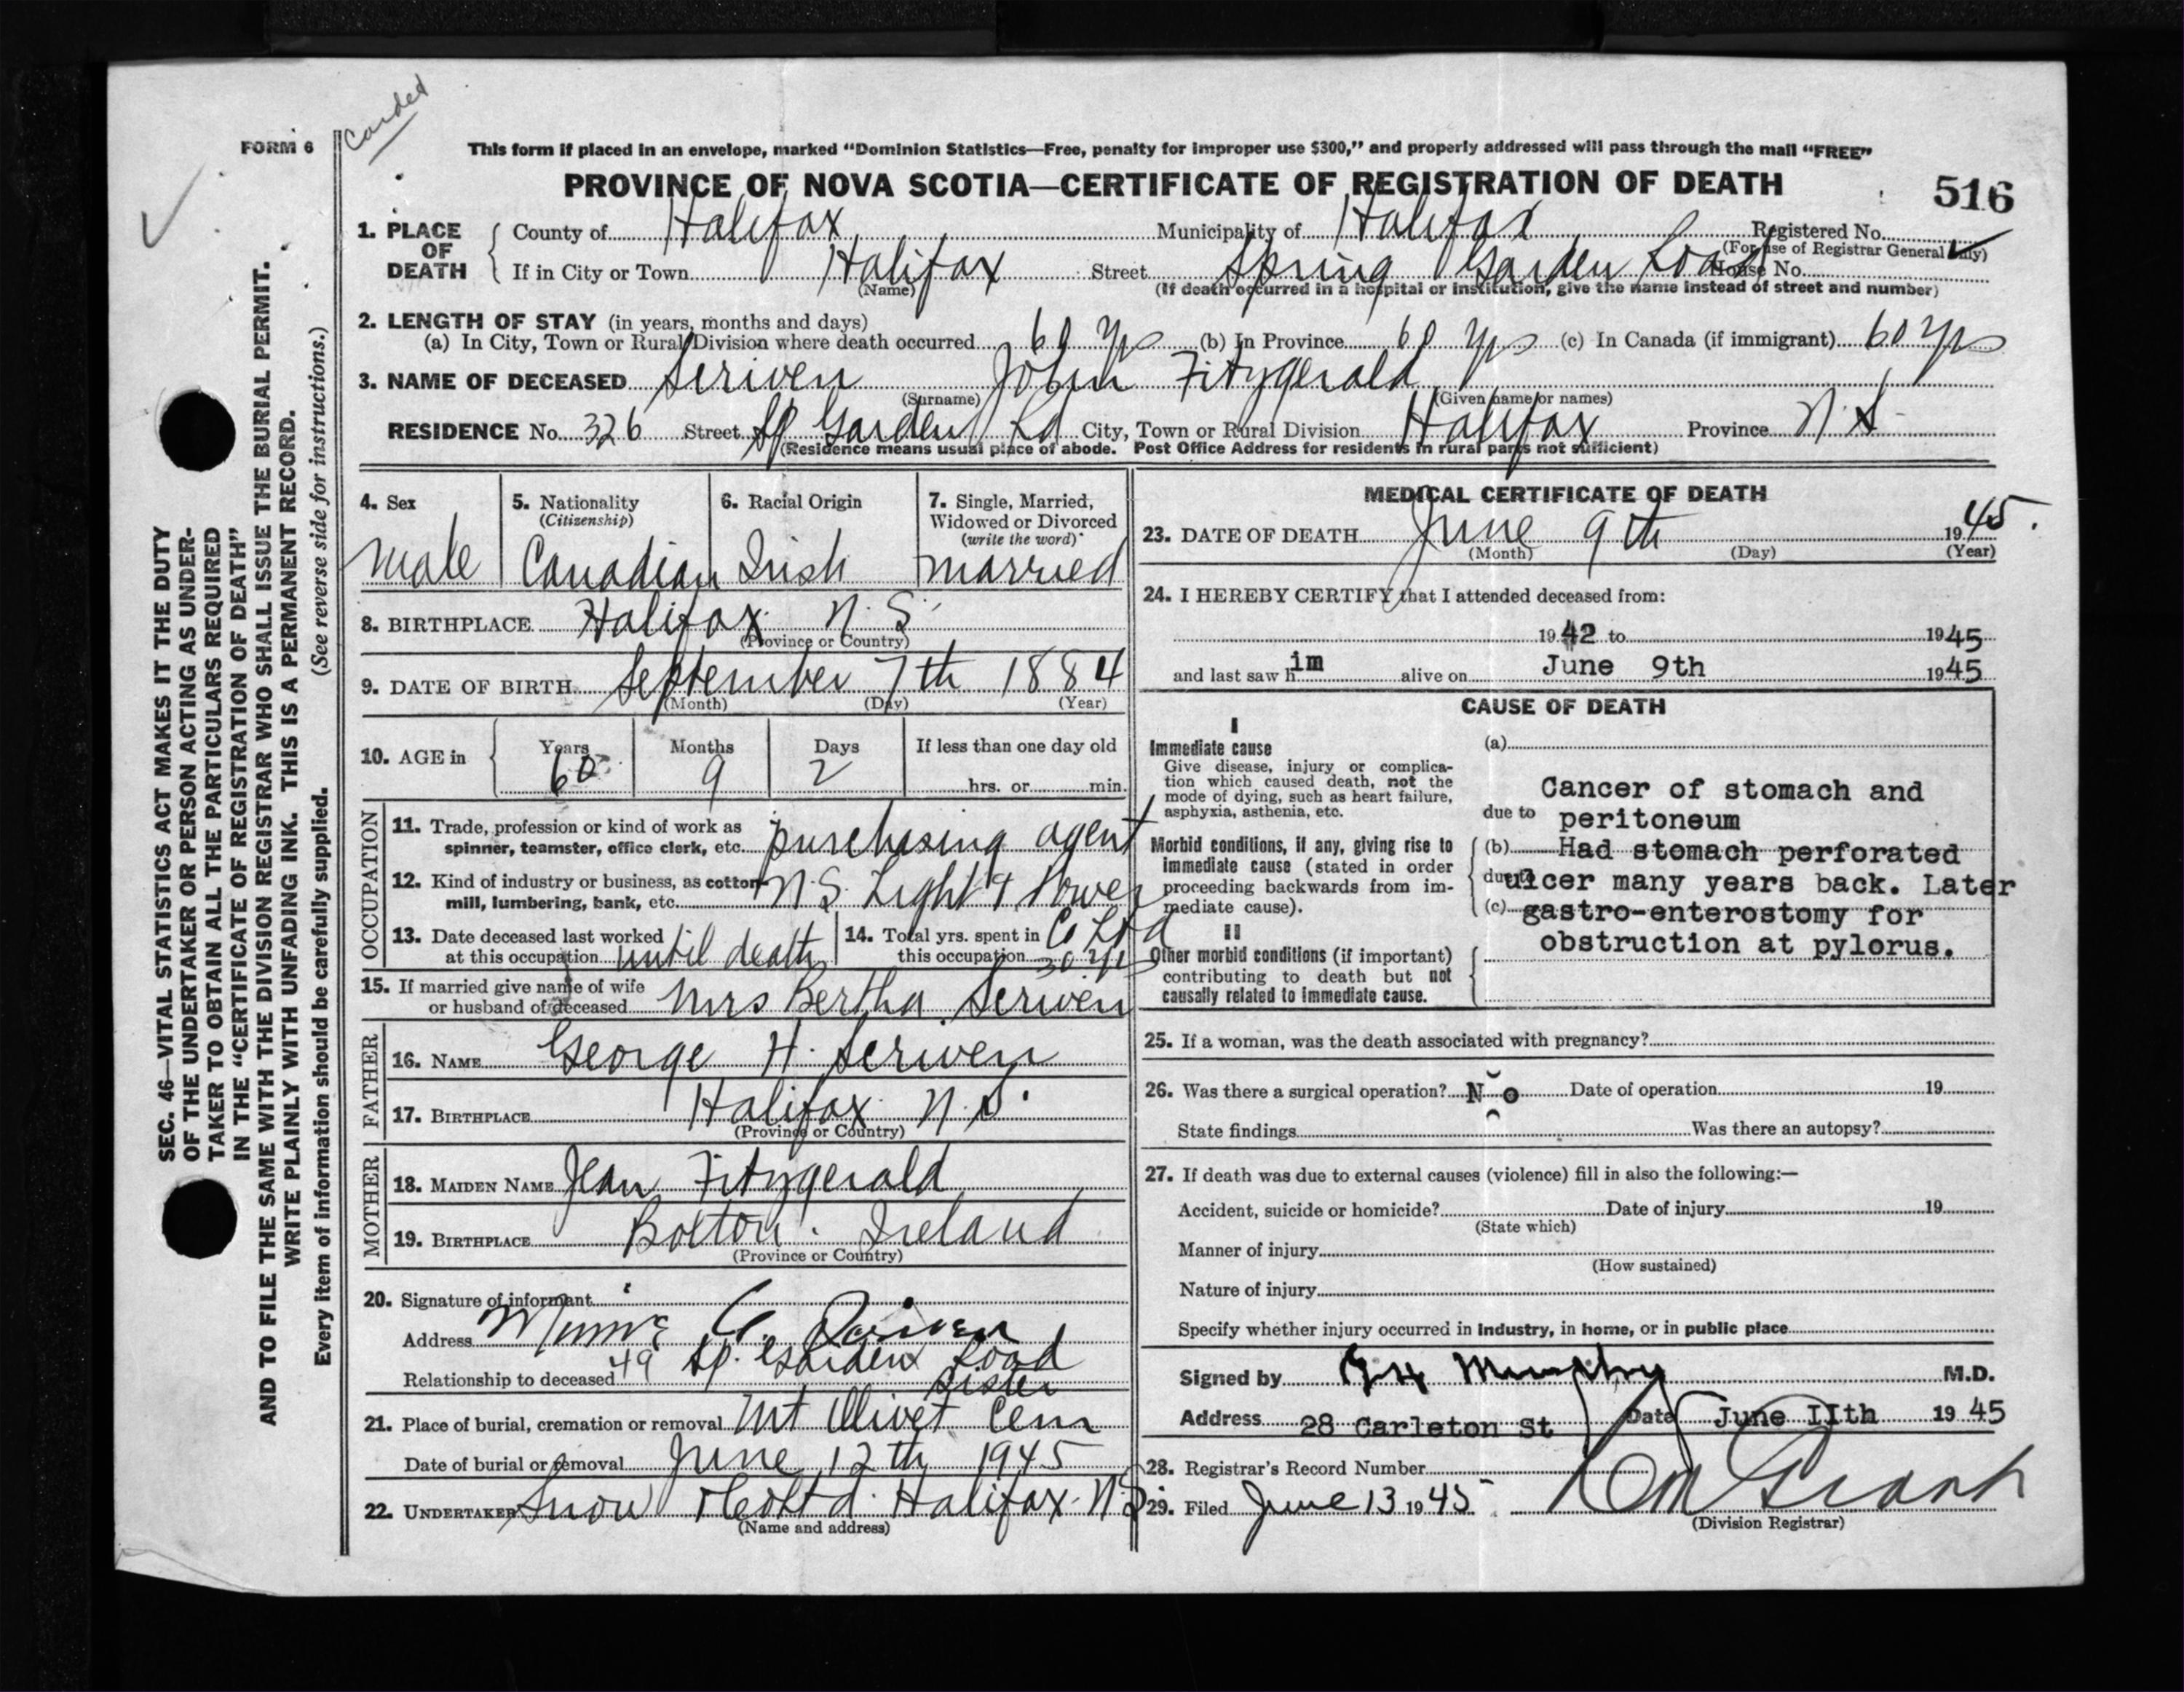 Carded
FORM 6
This form if placed in an envelope, marked “Dominion Statistics—Free, penalty for improper use $300,” and properly addressed will pass through the mail “FREE”
PROVINCE OF NOVA SCOTIA—CERTIFICATE OF REGISTRATION OF DEATH
516
1. PLACE OF DEATH
County of Halifax Municipality of Halifax Registered No.
(For use of Registrar General only)
If in City or Town Halifax Street Spring Garden Road House No.
(Name) (If death occurred in a hospital or institution, give the name instead of street and number)
2. LENGTH OF STAY (in years, months and days)
(a) In City, Town or Rural Division where death occurred 60 yrs (b) In Province 60 yrs (c) In Canada (if immigrant) 60 yrs
3. NAME OF DECEASED Scriven John Fitzgerald
(Surname) (Given name or names)
RESIDENCE No. 326 Street Sp Garden Rd City, Town or Rural Division Halifax Province N.S.
(Residence means usual place of abode. Post Office Address for residents in rural parts not sufficient)
4. Sex 5. Nationality (Citizenship) 6. Racial Origin 7. Single, Married, Widowed or Divorced (write the word)
Male Canadian Irish married
8. BIRTHPLACE Halifax N.S.
(Province or Country)
9. DATE OF BIRTH September 7th 1884
(Month) (Day) (Year)
10. AGE in Years Months Days If less than one day old
60 9 2 hrs. or min.
OCCUPATION
11. Trade, profession or kind of work as
spinner, teamster, office clerk, etc. purchasing agent
12. Kind of industry or business, as cotton
mill, lumbering, bank, etc. N.S. Light & Power Co Ltd
13. Date deceased last worked
at this occupation until death
14. Total yrs. spent in
this occupation 30 yrs
15. If married give name of wife
or husband of deceased Mrs Bertha Scriven
FATHER
16. NAME George H. Scriven
17. BIRTHPLACE Halifax N.S.
(Province or Country)
MOTHER
18. MAIDEN NAME Jean Fitzgerald
19. BIRTHPLACE Bolton Ireland
(Province or Country)
20. Signature of informant
Address
49 Sp. Garden Road
Relationship to deceased Sister
21. Place of burial, cremation or removal Mt Olivet Cem
Date of burial or removal June 12th 1945
22. UNDERTAKER Snow & Co Ltd. Halifax. N.S.
(Name and address)
MEDICAL CERTIFICATE OF DEATH
23. DATE OF DEATH June 9th 1945.
(Month) (Day) (Year)
24. I HEREBY CERTIFY that I attended deceased from:
1942 to 1945
and last saw him alive on June 9th 1945
CAUSE OF DEATH
I
Immediate cause
Give disease, injury or complica-
tion which caused death, not the
mode of dying, such as heart failure,
asphyxia, asthenia, etc.
Morbid conditions, if any, giving rise to
immediate cause (stated in order
proceeding backwards from im-
mediate cause).
II
Other morbid conditions (if important)
contributing to death but not
causally related to immediate cause.
(a)
Cancer of stomach and
due to peritoneum
(b) Had stomach perforated
due to ulcer many years back. Later
(c) gastro-enterostomy for
obstruction at pylorus.
25. If a woman, was the death associated with pregnancy?
26. Was there a surgical operation? No Date of operation 19
State findings Was there an autopsy?
27. If death was due to external causes (violence) fill in also the following:—
Accident, suicide or homicide? Date of injury 19
(State which)
Manner of injury
(How sustained)
Nature of injury
Specify whether injury occurred in industry, in home, or in public place
Signed by Murphy M.D.
Address 28 Carleton St Date June IIth 1945
28. Registrar's Record Number
29. Filed June 13 1945
(Division Registrar)
SEC. 46—VITAL STATISTICS ACT MAKES IT THE DUTY
OF THE UNDERTAKER OR PERSON ACTING AS UNDER-
TAKER TO OBTAIN ALL THE PARTICULARS REQUIRED
IN THE “CERTIFICATE OF REGISTRATION OF DEATH”
AND TO FILE THE SAME WITH THE DIVISION REGISTRAR WHO SHALL ISSUE THE BURIAL PERMIT.
WRITE PLAINLY WITH UNFADING INK. THIS IS A PERMANENT RECORD.
Every item of information should be carefully supplied. (See reverse side for instructions.)